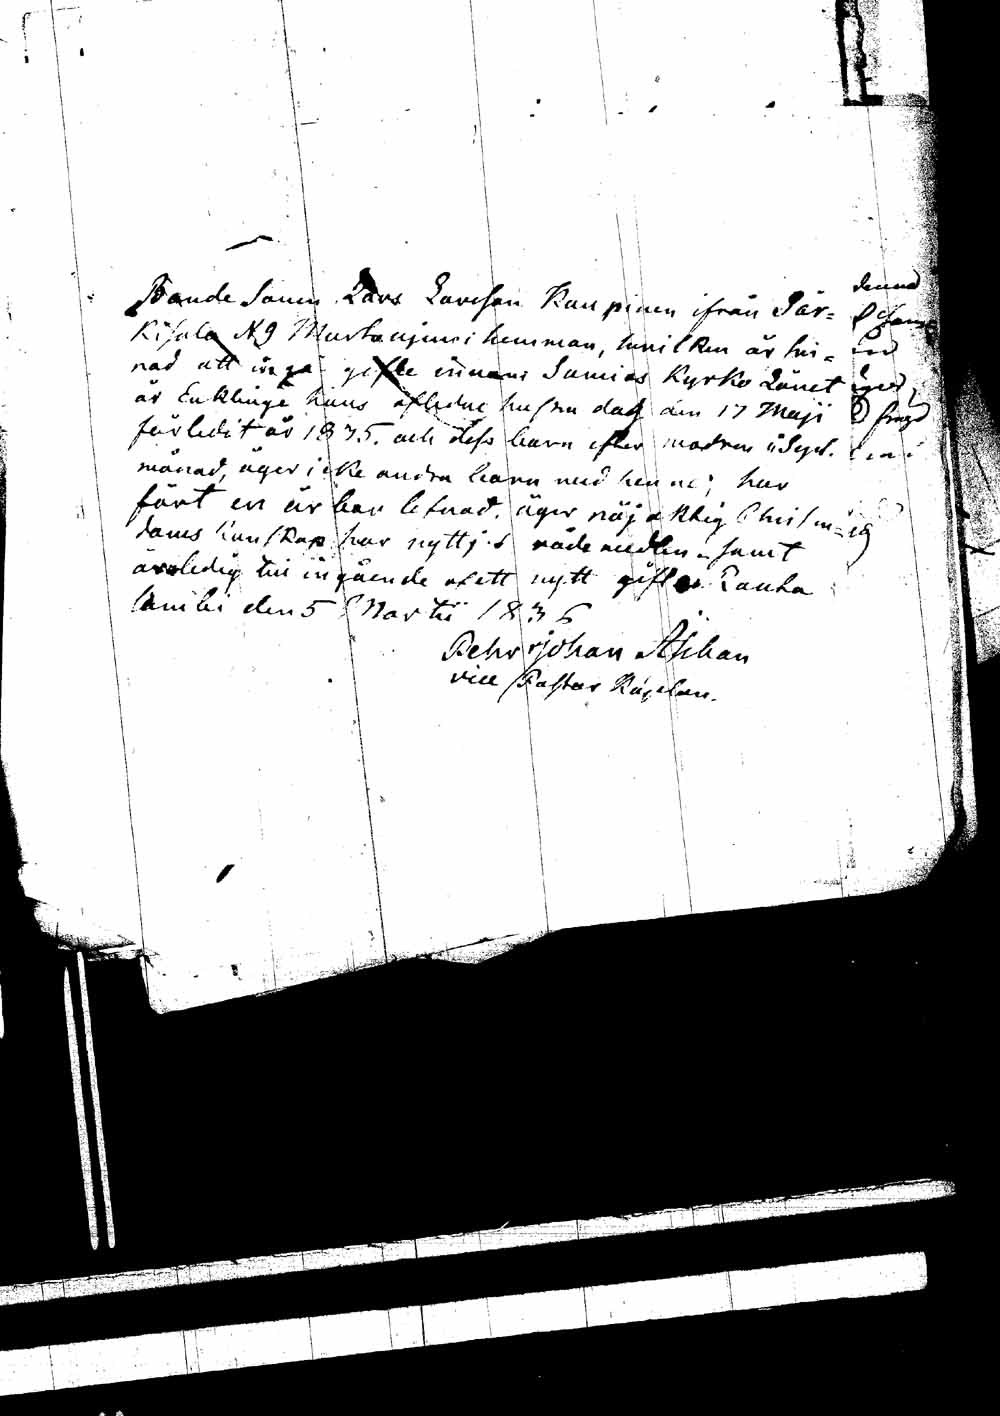 Bonde Sonen Lars Larsson Kaupinen ifrån Sär=
Kisalo N 9 Martanjemi hemman, hvilken är sin=
nad att ingå gifte innani Sumias Kyrko Länet
är Enklinge hans afledne hustru dog den 17 Maji
förledit år 1835. och dess barn efter modren i Sept.
månad, äger icke andra barn med henne; har
fört en ärbar lefnad. äger nöjaktig Christen=
doms kunskap har nyttjat nådemedlen samt
är ledig til ingående af ett nytt gifte. Rauta
lambi den 5 Martii 1836
Pehr Johan
vice Pastor